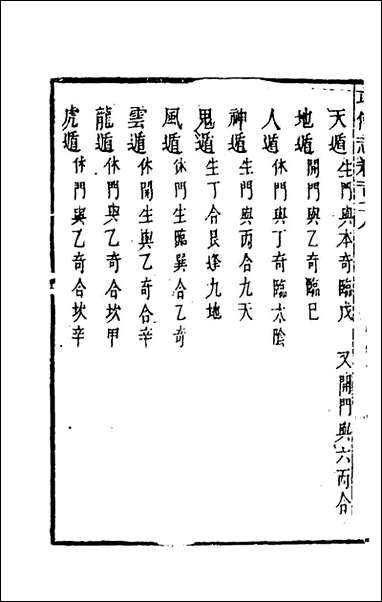 天遁生門與本奇臨戊　又開門與六丙合
地遁開門與乙奇臨巳
人遁休門與丁奇臨太陰
神遁生門與丙合九天
鬼遁生丁合艮逢九地
風遁休門生臨巽合乙奇
雲遁休開生與乙奇合辛
龍遁休門與乙奇合坎甲
虎遁休門與乙奇合坎辛